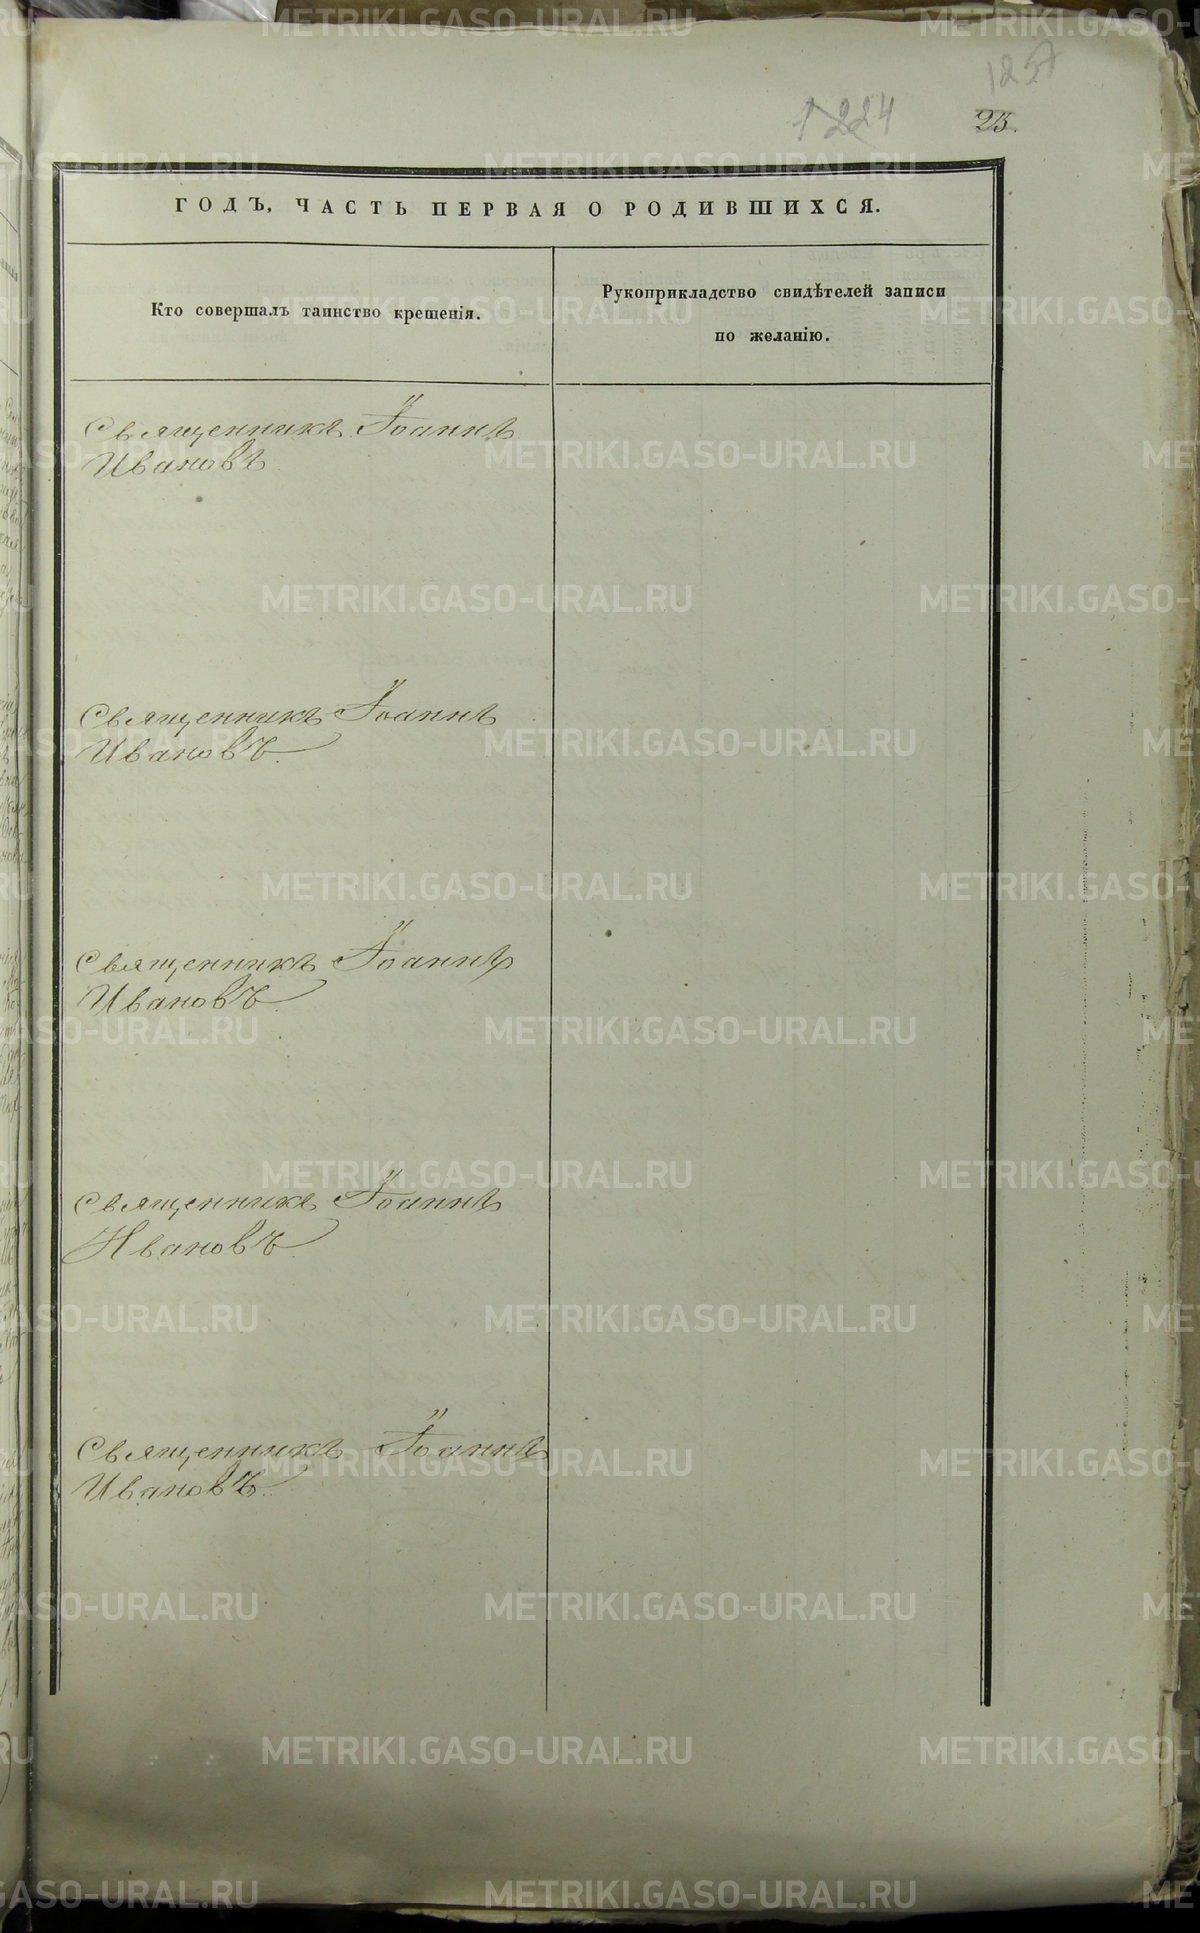 1257
1224
23.
ГОДЪ, ЧАСТЬ ПЕРВАЯ О РОДИВШИХСЯ.
Кто совершалъ таинство крещенія.
Рукоприкладство свидѣтелей записи
по желанію.
Священникъ Іоаннъ
Ивановъ
Священникъ Іоаннъ
Ивановъ.
Священникъ Іоаннъ
Ивановъ.
Священникъ Іоаннъ
Ивановъ.
Священникъ Іоаннъ
Ивановъ.
METRIKI.GASO-URAL.RU